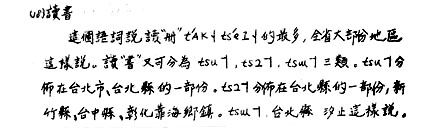 (18)讀書
這個語詞説讀"册" t'Ak˧ ts'eʔ˧ 的最多,全省大部份地區
這樣説。讀"書"又可分為 tsu˥, tsɿ˥, tsɯ˥ 三類。tsu˥分
佈在台北市、台北縣的一部份。tsɿ˥分佈在台北縣的一部份,新
竹縣、台中縣、彰化靠海鄉鎮。tsɯ˥, 台北縣 汐止這樣說。